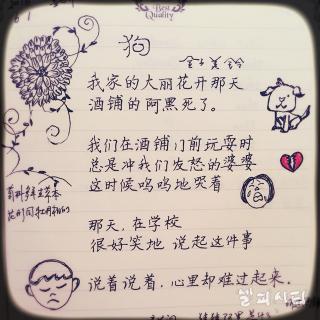 Best
Quality
狗
金子美铃
我家的大丽花开那天
酒铺的阿黑死了。
我们在酒铺门前玩耍时
总是冲我们发怒的婆婆
这时候呜呜地哭着
那天,在学校
很好笑地 说起这件事
说着说着,心里却难过起来.